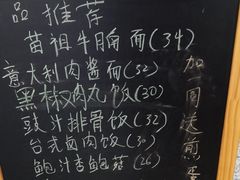 品推荐
苗祖牛腩面(34)
意大利肉酱面(32)
黑椒肉丸饭(20)
豉汁排骨饭(32)
台式卤肉饭(30)
鲍汁杏鲍菇(26
加 送煎蛋